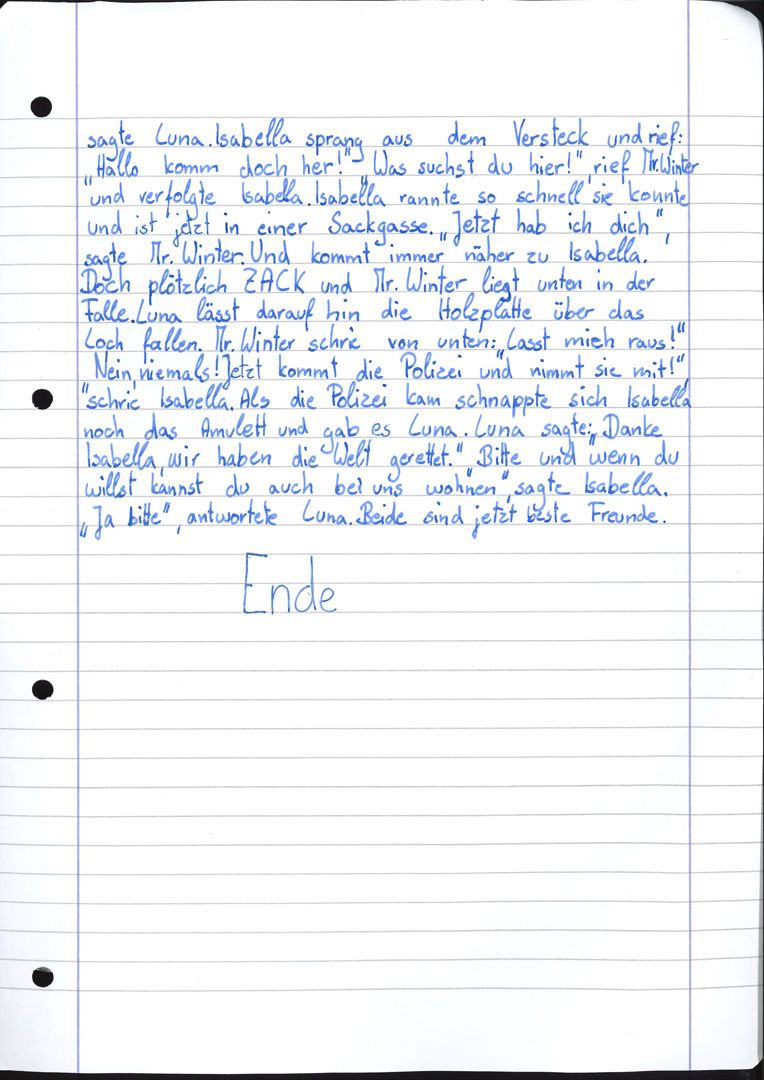 sagte Luna. Isabella sprang aus dem Versteck und rief:
„Hallo komm doch her!" „Was suchst du hier!", rief Mr. Winter
und verfolgte Isabella. Isabella rannte so schnell sie konnte
und ist jetzt in einer Sackgasse. „Jetzt hab ich dich",
sagte Mr. Winter. Und kommt immer näher zu Isabella.
Doch plötzlich ZACK und Mr. Winter liegt unten in der
Falle. Luna lässt darauf hin die Holzplatte über das
Loch fallen. Mr. Winter schrie von unten: „Lasst mich raus!"
„Nein, niemals! Jetzt kommt die Polizei und nimmt sie mit!",
schrie Isabella. Als die Polizei kam schnappte sich Isabella
noch das Amulett und gab es Luna. Luna sagte: „Danke
Isabella, wir haben die Welt gerettet." „Bitte und wenn du
willst kannst du auch bei uns wohnen", sagte Isabella.
„Ja bitte", antwortete Luna. Beide sind jetzt beste Freunde.
Ende